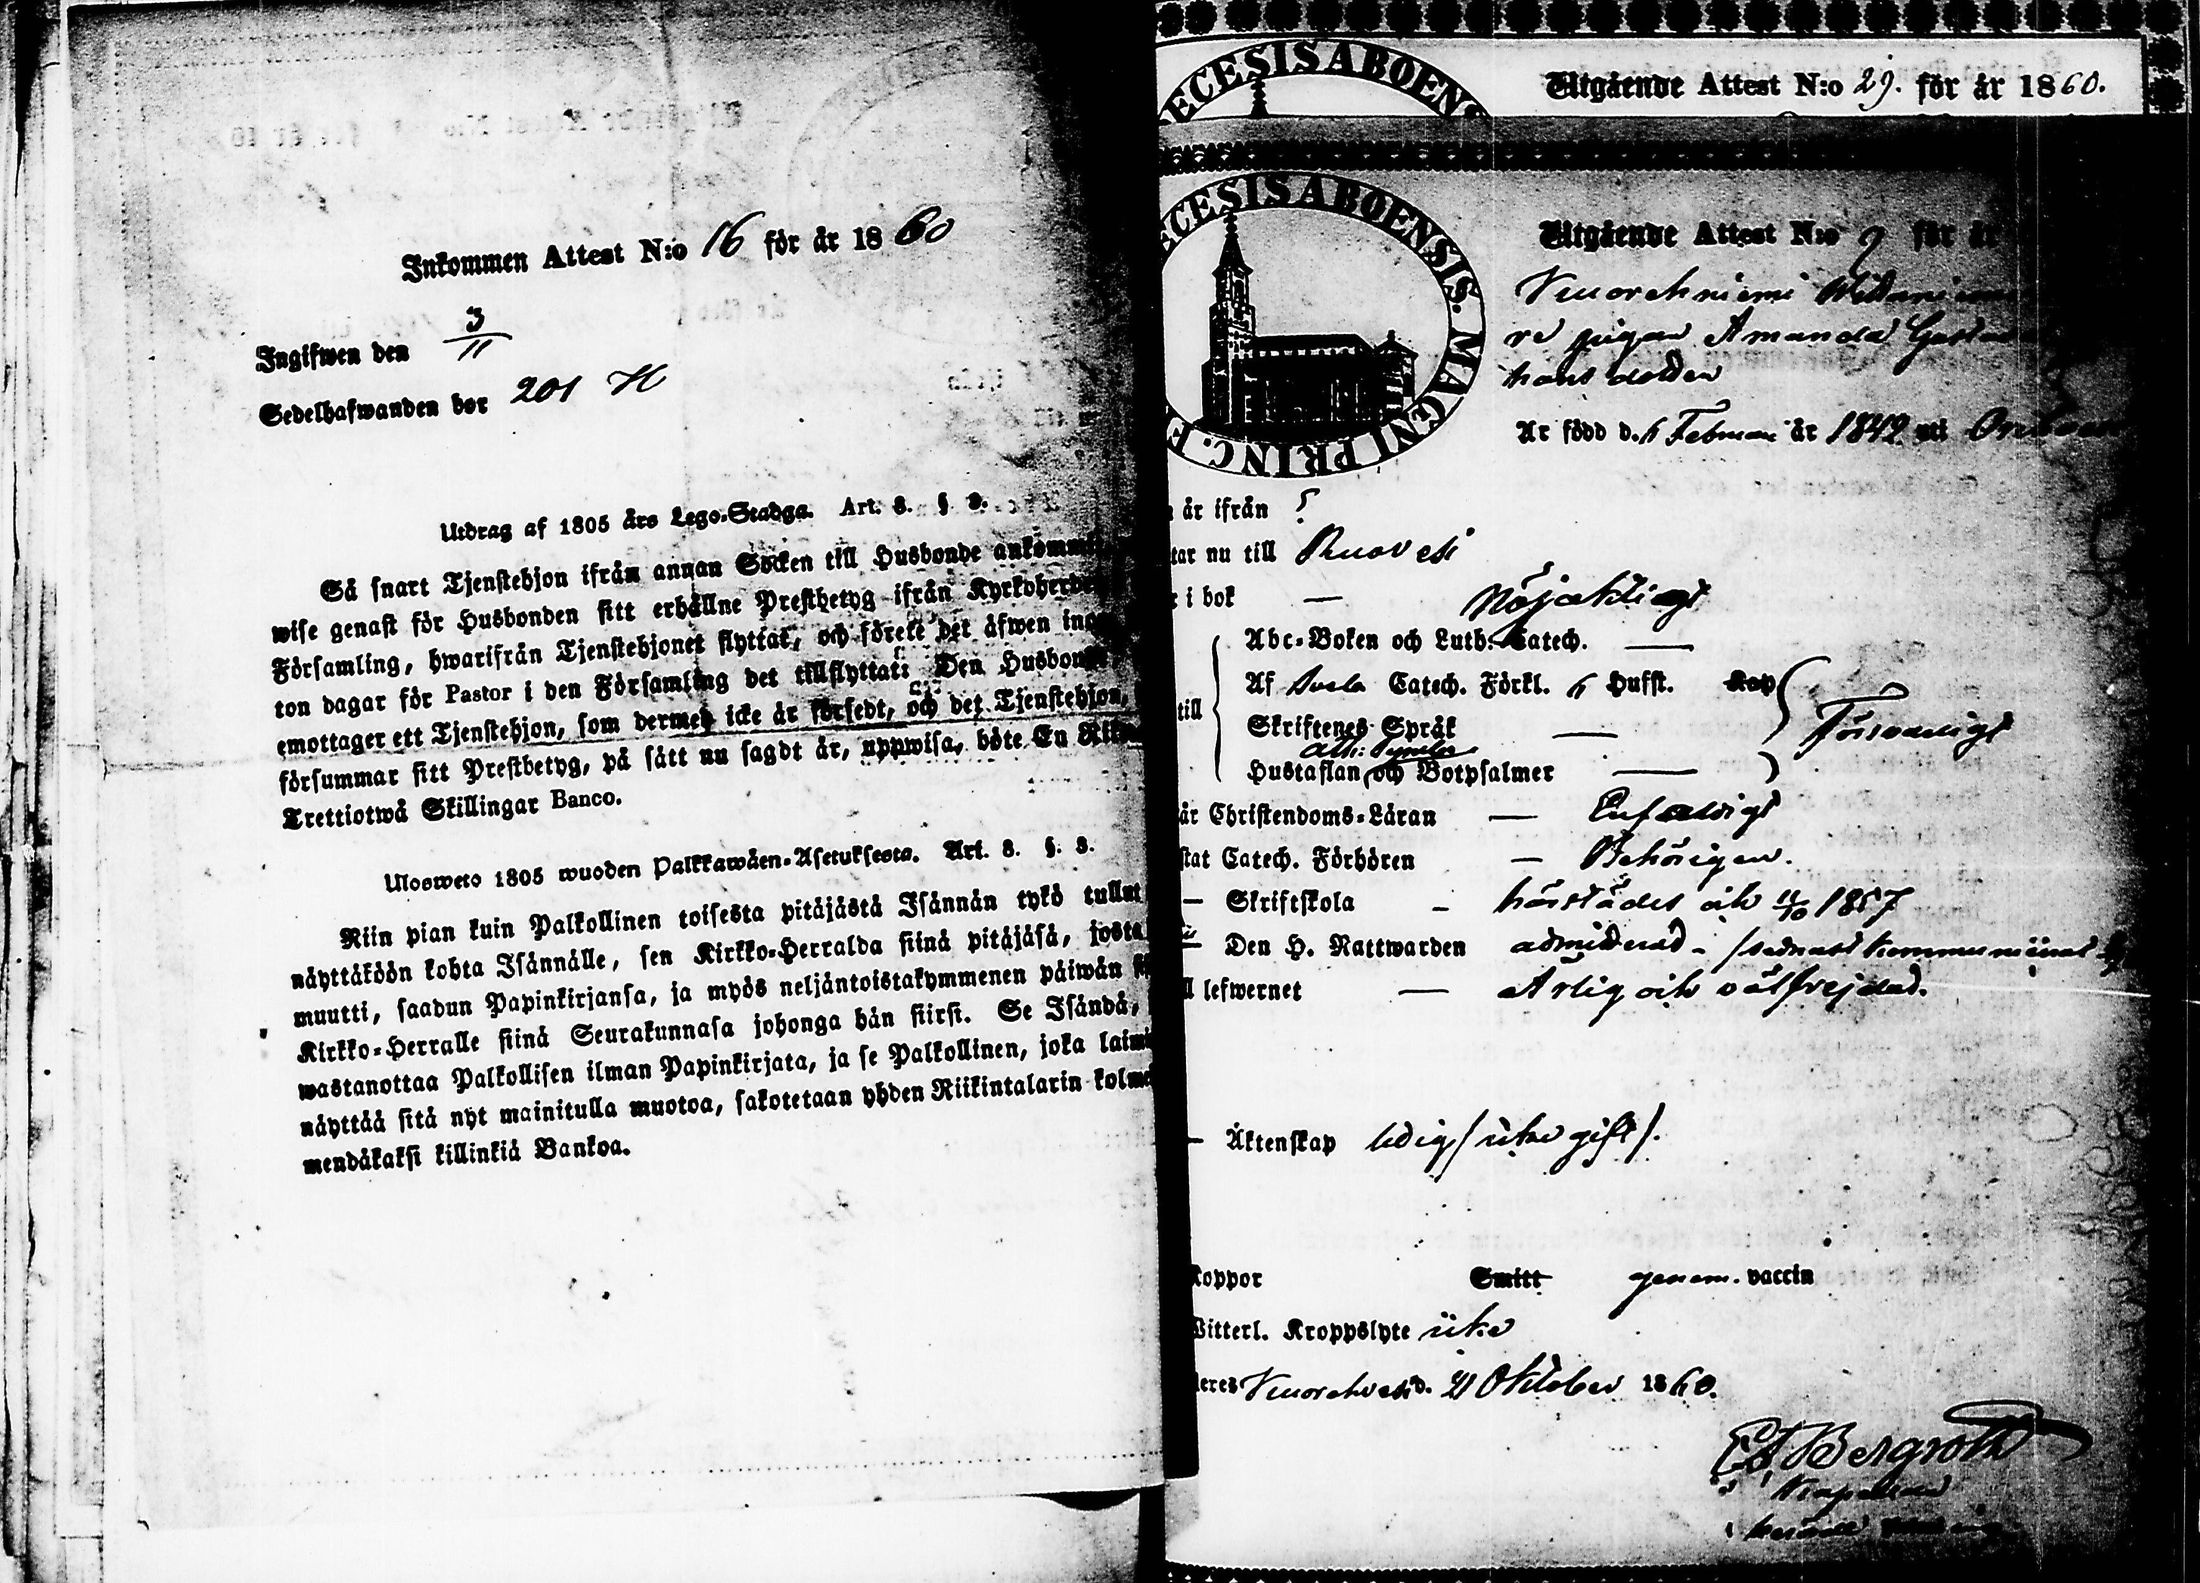 Inkommen Attest N:o 16 för år 1860
Ingifwen den 3/11
Sedelhafwanden bor 201 H
Utdrag af 1805 års Lego-Stadga. Art. 8. § 3.
Så snart Tjenstehjon ifrån annan Socken till Husbonde
wise genast för Husbonden sitt erhållne Prestbetyg ifrån
Församling, hwarifrån Tjenstehjonet flyttat, och förete det äfwen
ton dagar för Pastor i den Församling det tillflyttat: Den
emottager ett Tjenstehjon, som dermed icke är försedt, och det Tjenstehjon,
försummar sitt Prestbetyg, på sätt nu sagdt är, uppwisa, böte En
Trettiotwå Skillingar Banco.
Ulosweto 1805 wuoden Palkkawäen-Asetuksesta. Art. 8. §. 3.
Niin pian kuin Palkollinen toisesta pitäjästä Isännän tykö tullut
näyttäköön kohta Isännälle, sen Kirkko-Herralda siinä pitäjäsä, josta
muutti, saadun Papinkirjansa, ja myös neljäntoistakymmenen päiwän
Kirkko-Herralle siinä Seurakunnasa johonga hän siirsi. Se Isändä,
wastanottaa Palkollisen ilman Papinkirjata, ja se Palkollinen, joka
näyttää sitä nyt mainitulla muotoa, sakotetaan yhden Riikintalarin
mendäkaksi killinkiä Bankoa.
ECESIS ABOENS
Utgående Attest N:o 29. för år 1860.
ECESIS ABOENSIS. MAGNI PRINC. F
Utgående Attest N:o 9 för år
pigan Amanda
Är född d. 6 Februari år 1842 uti
är ifrån
tar nu till Ruovesi
i bok — Nöjaktigt
till
Abc-Boken och Luth. Catech. —
Af Sveb. Catech. Förkl. 6 Hufst.
Skriftenes Språk —
Ath: Symbol
Hustaflan och Botpsalmer —
Försvarligt
är Christendoms-Läran — Enfaldigt
stat Catech. Förhören — Behörigen.
— Skriftskola - härstädes och 11/10 1857
— Den H. Nattwarden admitterad -
lefwernet — Ärlig och välfrejdad.
— Äktenskap ledig / icke gift /.
koppor Smitt genom. vaccin
Witterl. Kroppslyte icke
d. 21 Oktober 1860.
Bergroth
Kapellan